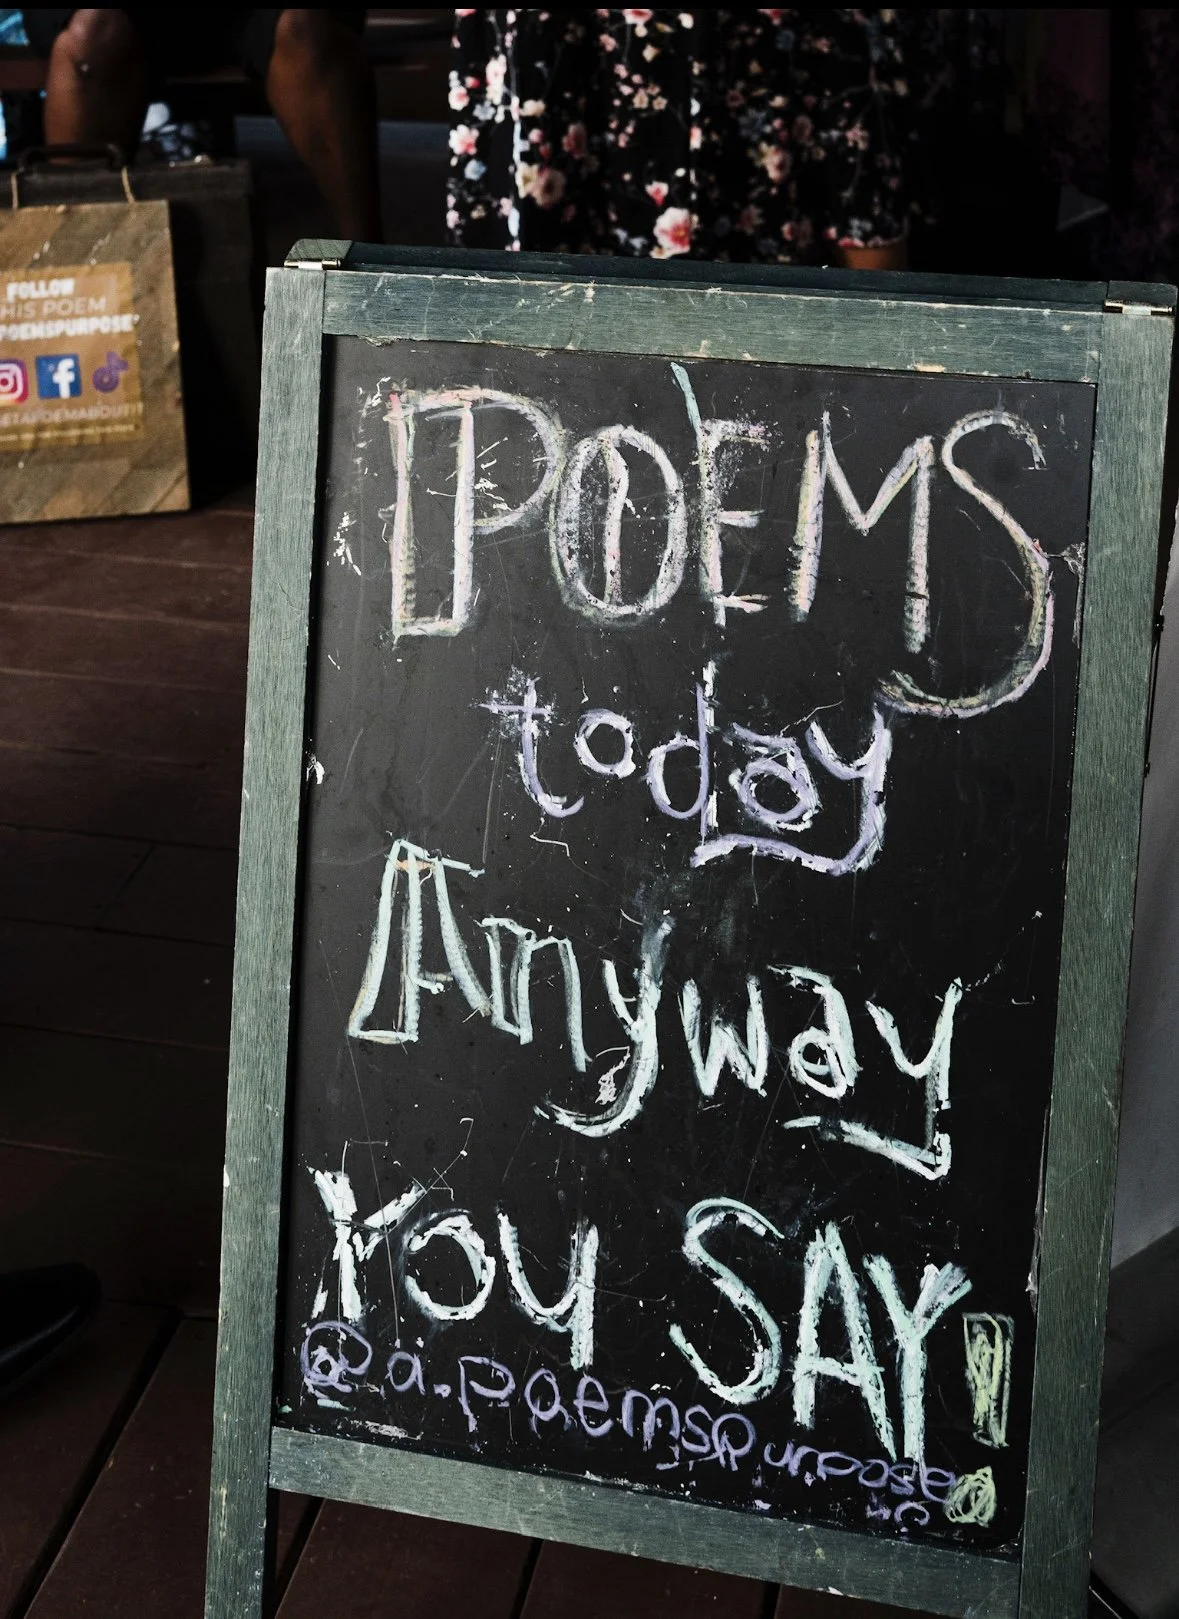 FOLLOW
HIS POEM
POEMSPURPOSE
POEMS
today
Anyway
You SAY!
@a.poemspurpose